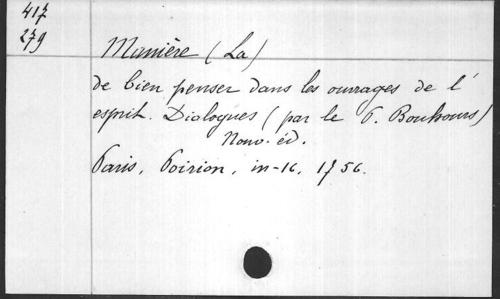 417
279
Manière (La)
de bien penser dans les ouvrages de l'
esprit. Dialogues (par le P. Bouhours)
Nouv. éd.
Paris, Poirion, in-16, 1756.